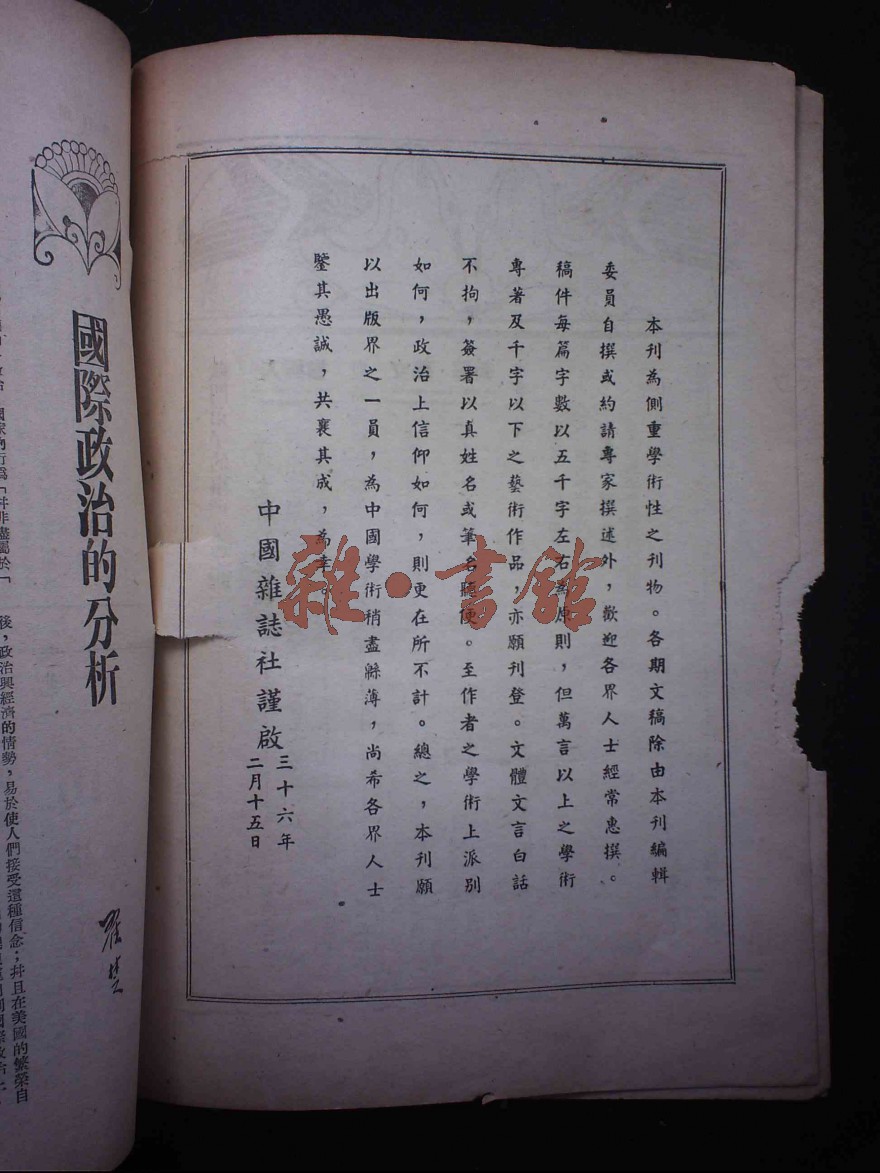 本刊為側重學術性之刊物。各期文稿除由本刊編輯
委員自撰或約請專家撰述外，歡迎各界人士經常惠撰。
稿件每篇字數以五千字左右為原則，但萬言以上之學術
專著及千字以下之藝術作品，亦願刊登。文體文言白話
不拘，簽署以真姓名或筆名聽便。至作者之學術上派別
如何，政治上信仰如何，則更在所不計。總之，本刊願
以出版界之一員，為中國學術稍盡綿薄，尚希各界人士
鑒其愚誠，共襄其成，為幸。
中國雜誌社謹啟
三十六年
二月十五日
雜·書館
國際政治的分析
後，政治與經濟的情勢，易於使人們接受這種信念；并且在美國的繁榮自